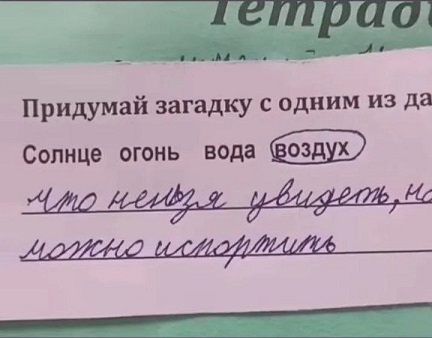 Тетрад
Придумай загадку с одним из да
Солнце огонь вода воздух
что нельзя увидеть, но
можно испортить